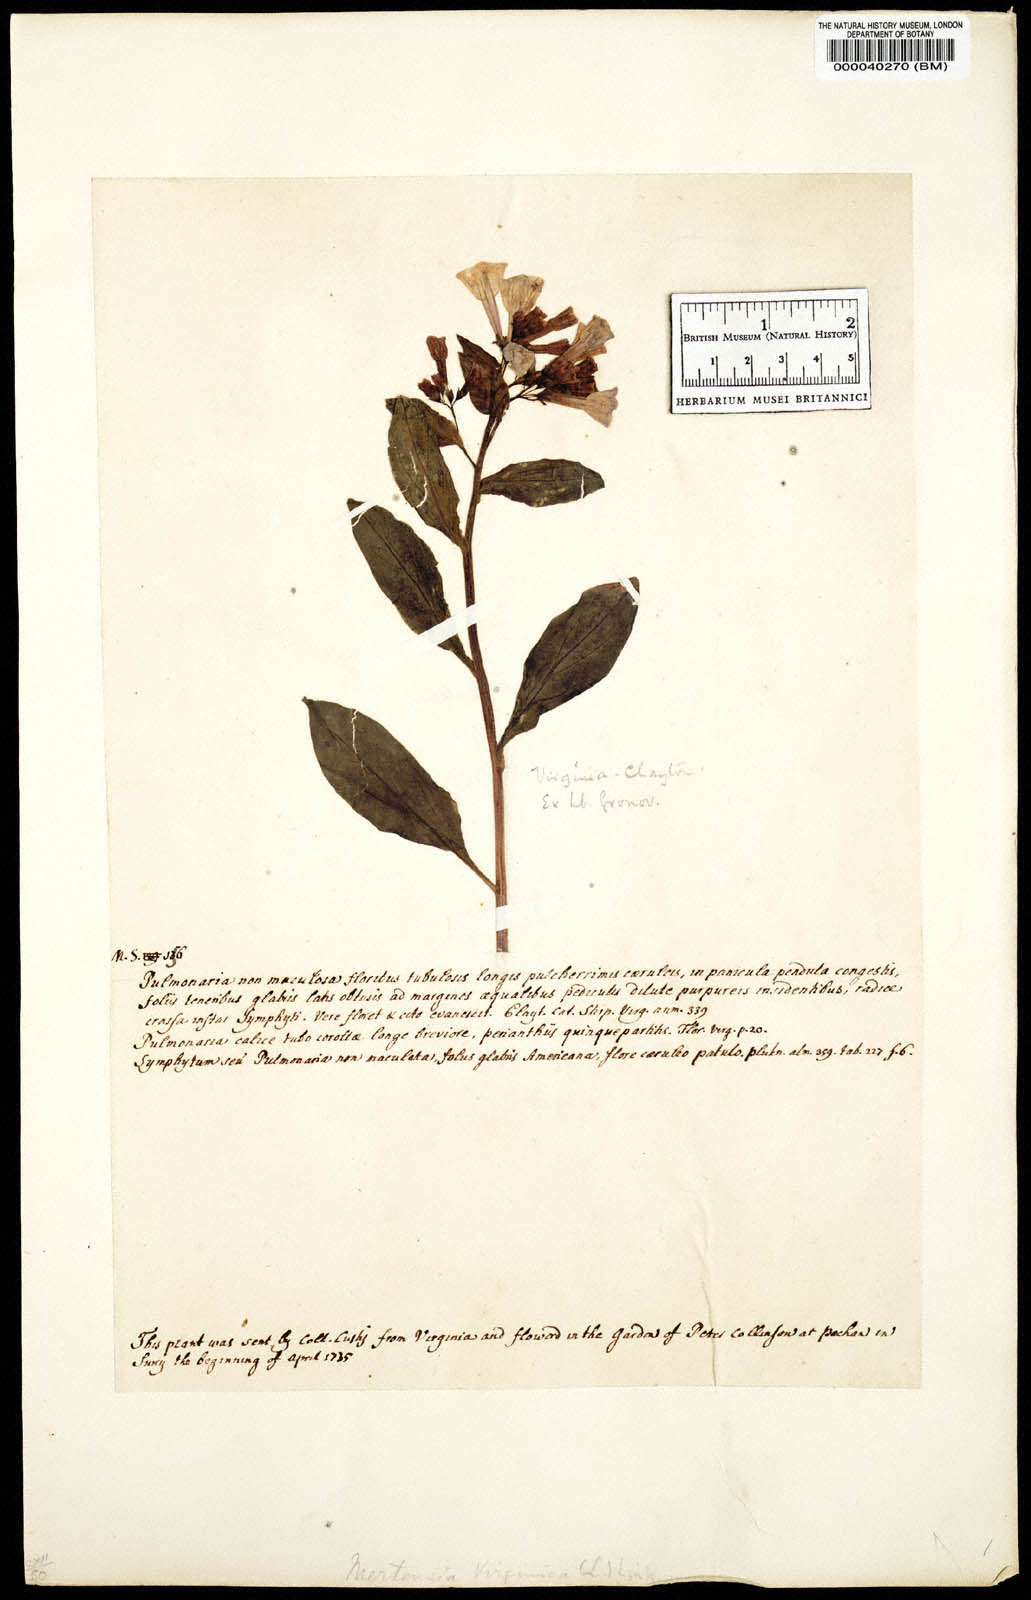 THE NATURAL HISTORY MUSEUM, LONDON
DEPARTMENT OF BOTANY
000040270 (BM)
1 2
BRITISH MUSEUM (NATURAL HISTORY)
1 2 3 4 5
HERBARIUM MUSEI BRITANNICI
Virginia - Clayton.
Ex hb. Gronov.
M. S. 
Pulmonaria non maculosa floribus tubulosis longis pulcherrimis cæruleis, in panicula pendula congestis,
foliis teneribus glabris latis obtusis ad margines æqualibus pediculis dilute purpureis incidentibus, radice
crassa instar Symphyti. Vere floret & cito evanescit. Clayt. Cat. Stirp. Virg. num. 339
Pulmonaria calice tubo corollæ longe breviore, perianthiis quinquepartitis. Flor. Virg. p. 20.
Symphytum seu Pulmonaria non maculata, foliis glabris Americana, flore cæruleo patulo. plukn. alm. 359. tab. 227 f. 6.
This plant was sent by Coll. Custis from Virginia and flowerd in the Garden of Peter Collinson at Pecham in
Surry the beginning of April 1735
Mertensia virginica (L.) Link